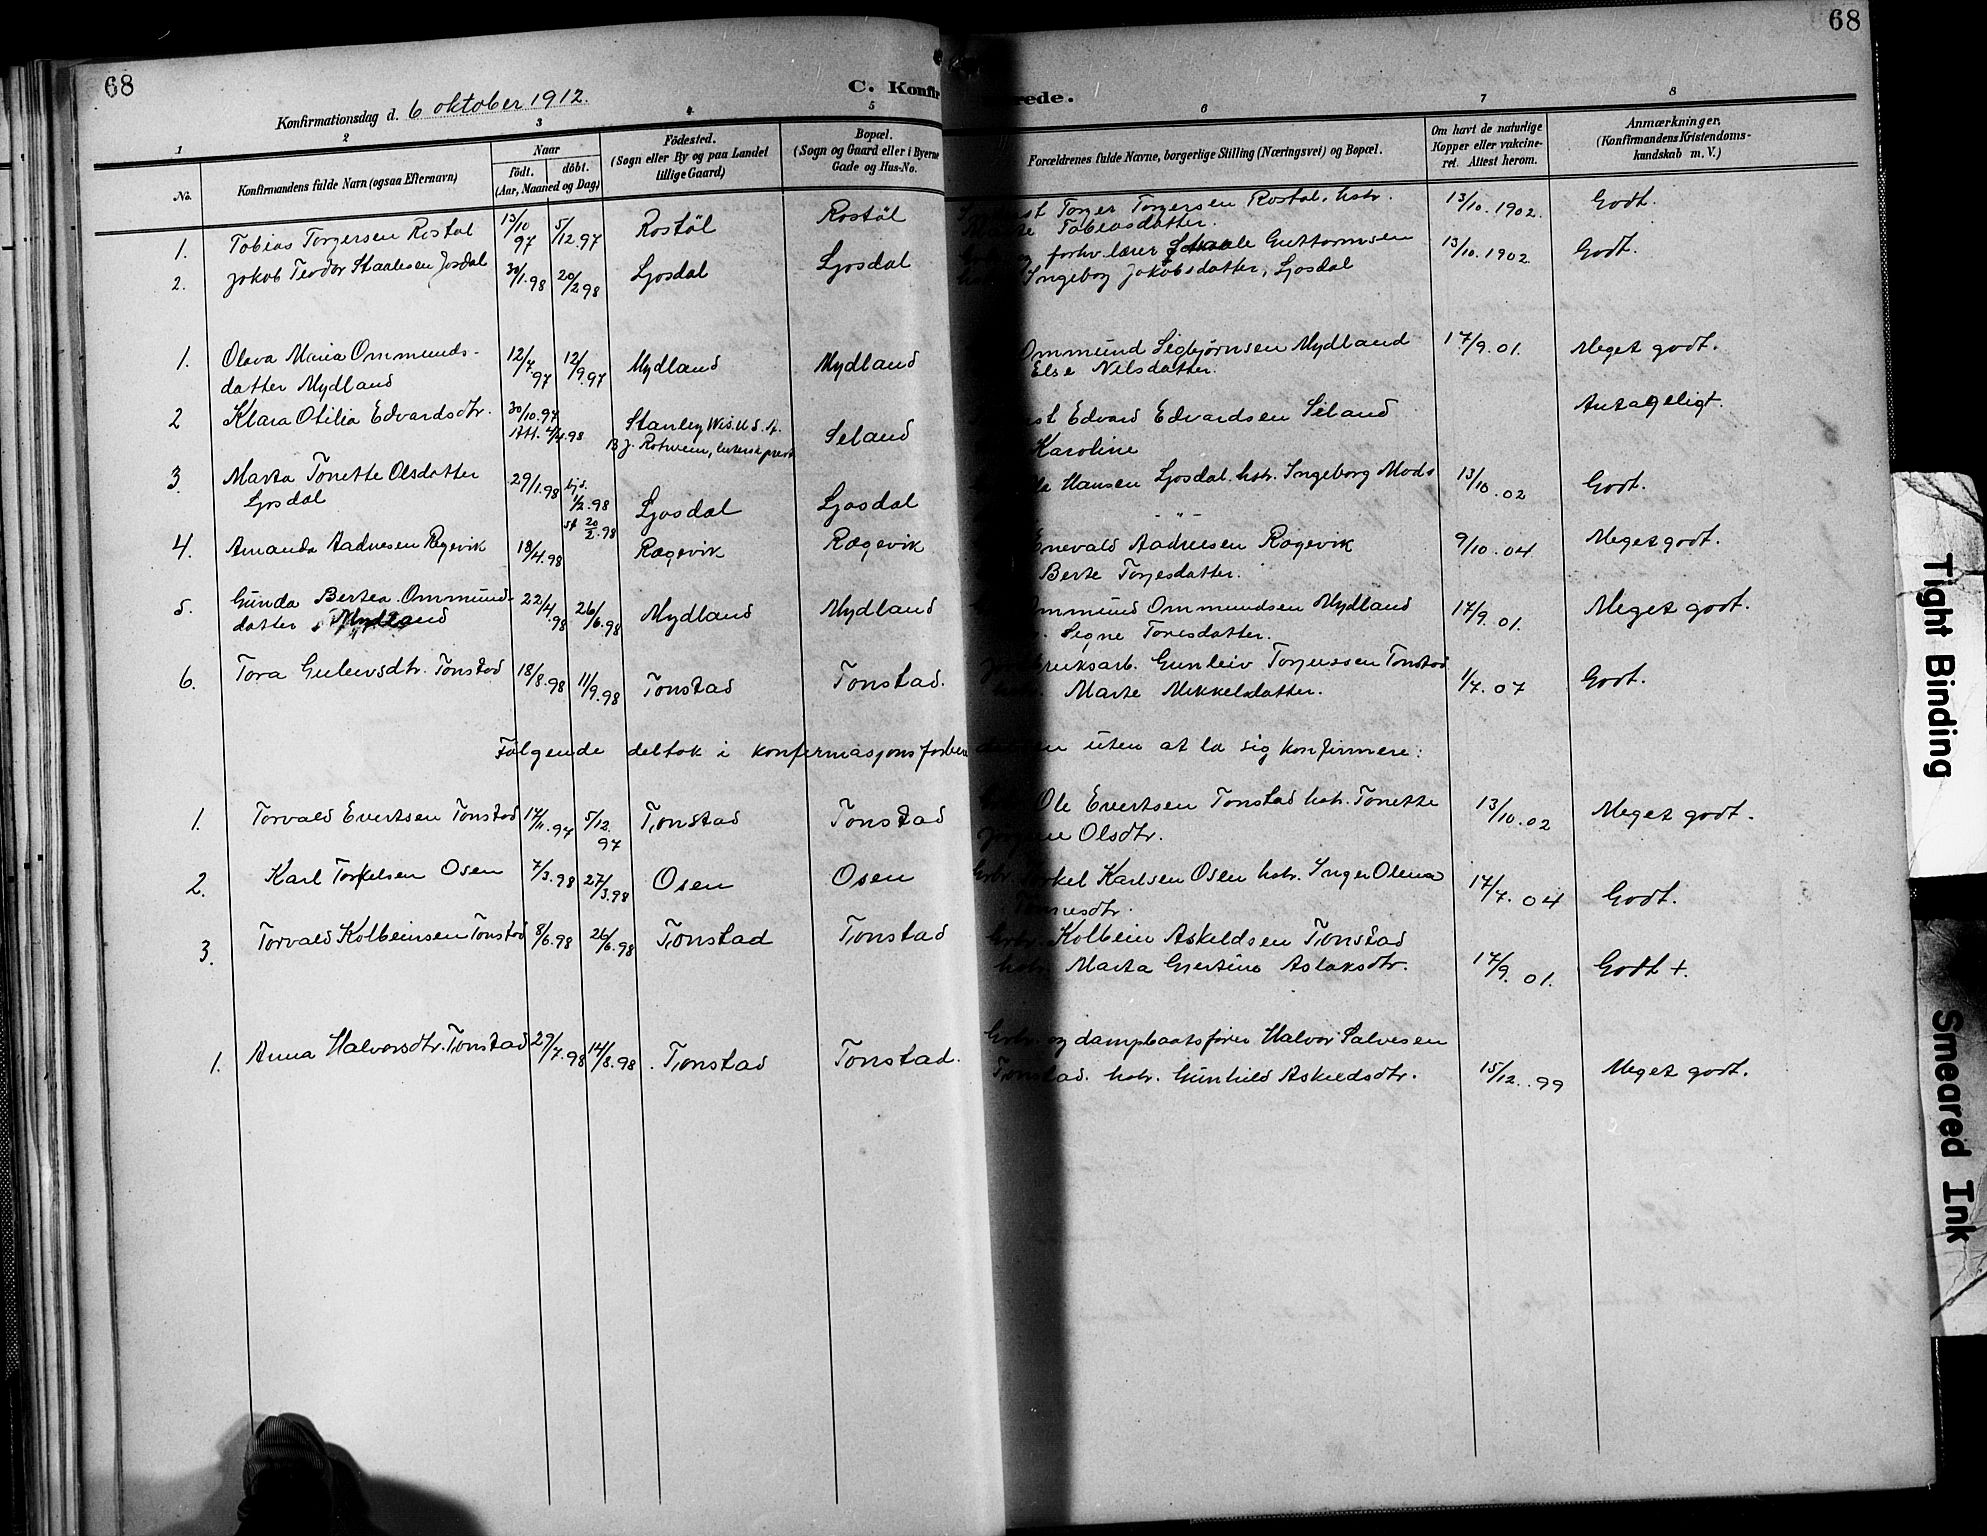 68
68
Konfirmationsdag d. 6 oktober 1912.
C. Konfir
rede.
1
2
3
4
5
6
7
8
No.
Konfirmandens fulde Navn (ogsaa Efternavn)
Naar
födt.
döbt.
(Aar, Maaned og Dag)
Födested.
(Sogn eller By og paa Landet
tillige Gaard)
Bopæl.
(Sogn og Gaard eller i Byerne
Gade og Hus-No.
Forældrenes fulde Navne, borgerlige Stilling (Næringsvei) og Bopæl.
Om havt de naturlige
Kopper eller vakcine-
ret. Attest herom.
Anmærkninger,
(Konfirmandens Kristendoms-
kundskab m. V.)
1. Tobias Torgersen Rostøl 13/10 97 5/12.97 Rostöl Rostöl Torger Torgersen Rostøl. hstr. 13/10.1902. Godt.
Tobiasdatter.
2. Jakob Teodor Staalesen Josdal 30/1.98 20/2 98 Ljosdal Ljosdal forhv. lærer Staale Guttormsen 13/10.1902 Godt.
Ingeborg Jakobsdatter, Ljosdal
1. Olava Maria Ommunds- 12/7 97 12/9.97 Mydland Mydland Ommund Sigbjørnsen Mydland 17/9.01. Meget godt.
datter Mydland Else Nilsdatter.
2 Klara Otilia Edvardsdtr. 30/10.97 Stanley Wis. U.S.A. Seland Edvard Edvardsen Seland Antageligt.
Att. 4/4.98 B.J. Rotheim, luthersk prest Karoline
3. Marta Tonette Olsdatter 29/1.98 hjd. 1/2.98 Ljosdal Ljosdal Hansen Ljosdal. hstr. Ingeborg Mads 13/10.02 Godt.
Ljosdal st 20/2.98 - " -
4. Amanda Aadnesen Regevik 18/4.98 Rægevik Rægevik Enevald Aadnesen Rægevik 9/10.04 Meget godt.
Berte Torjesdatter.
5. Gunda Bertea Ommund- 22/4.98 26/6.98 Mydland Mydland Ommund Ommundsen Mydland 17/9.01. Meget godt.
datter Mydland Signe Toresdatter.
6. Tora Gulleivsdtr. Tonstad 18/8.98 11/9.98 Tonstad Tonstad. bruksarb. Gunleiv Torjussen Tonstad 1/7.07 Godt.
Marte Mikkelsdatter.
Følgende deltok i konfirmasjonsforbere uten at la sig konfirmere:
1. Torvald Evertsen Tonstad 17/11.97 5/12.97 Tonstad Tonstad Ole Evertsen Tonstad hstr. Tonette 13/10.02 Meget godt.
Olsdtr.
2. Karl Torkelsen Osen 7/3.98 27/3.98 Osen Osen Torkel Karlsen Osen hstr. Inger Olena 17/7.04 Godt.
Tonnesdtr.
3. Torvald Kolbeinsen Tonstad 8/6.98 26/6.98 Tonstad Tonstad Grbr. Kolbein Askeldsen Tonstad 17/9.01. Godt +.
hstr. Marta Gjertine Aslaksdtr.
1. Anna Halvorsdtr. Tonstad 29/7.98 14/8.98 Tonstad Tonstad. Grbr. og dampbaatsfører Halvor Salvesen 15/12.99 Meget godt.
Tonstad. hstr. Gunhild Askeldsdtr.
Tight Binding
Smeared Ink